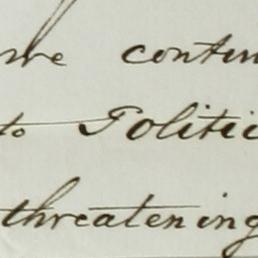 me contin
to Politic
threatening